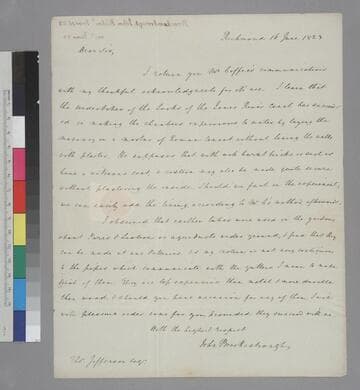 Richmond 16 June 1823
Dear Sir,
I return you Mr Coffee's communication
with my thankful acknowledgments for its use. I learn that
the undertaker of the Locks of the James River Canal has succeed-
ed in making the chambers impervious to water by laying the
masonry in a mortar of Roman cement without lining the walls
with plaster. He supposes that with such burnt bricks as will not
have a vitreous coat, a cistern may also be made quite secure
without plastering the inside. Should we fail in the experiment,
we can easily add the lining according to Mr C's method afterwards.
I observed that earthen tubes are used in the gardens
about Paris & London as aqueducts under ground, & find that they
can be made at our Potteries.
to the pipes which communicate with the gutters I mean to make
trial of them. They are less expensive than metal & more durable
than wood, & should you have occasion for any of them I will
with pleasure order some for you provided they succeed with me.
With the highest respect
John Brockenbrough
Tho: Jefferson esqr.